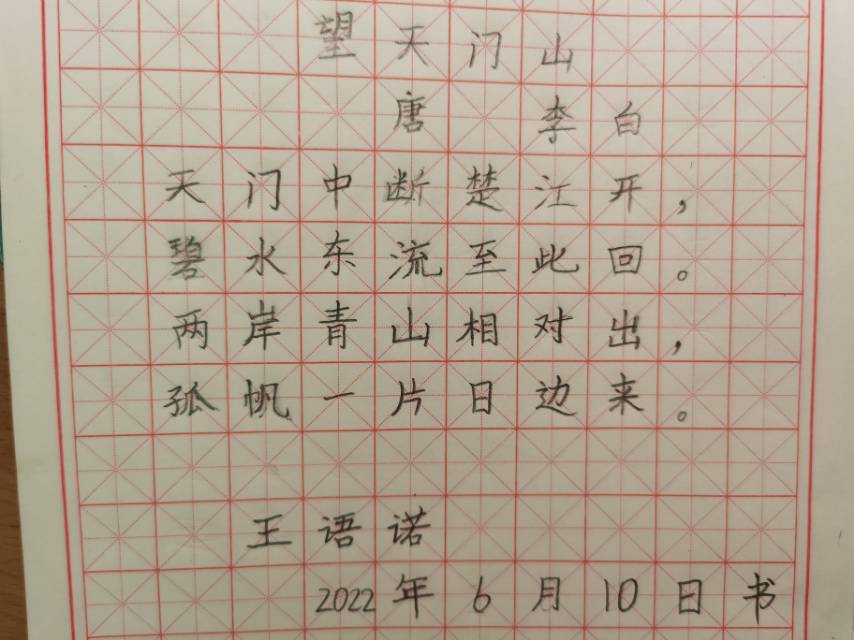 望天门山
唐 李白
天门中断楚江开，
碧水东流至此回。
两岸青山相对出，
孤帆一片日边来。
王语诺
2022年6月10日书